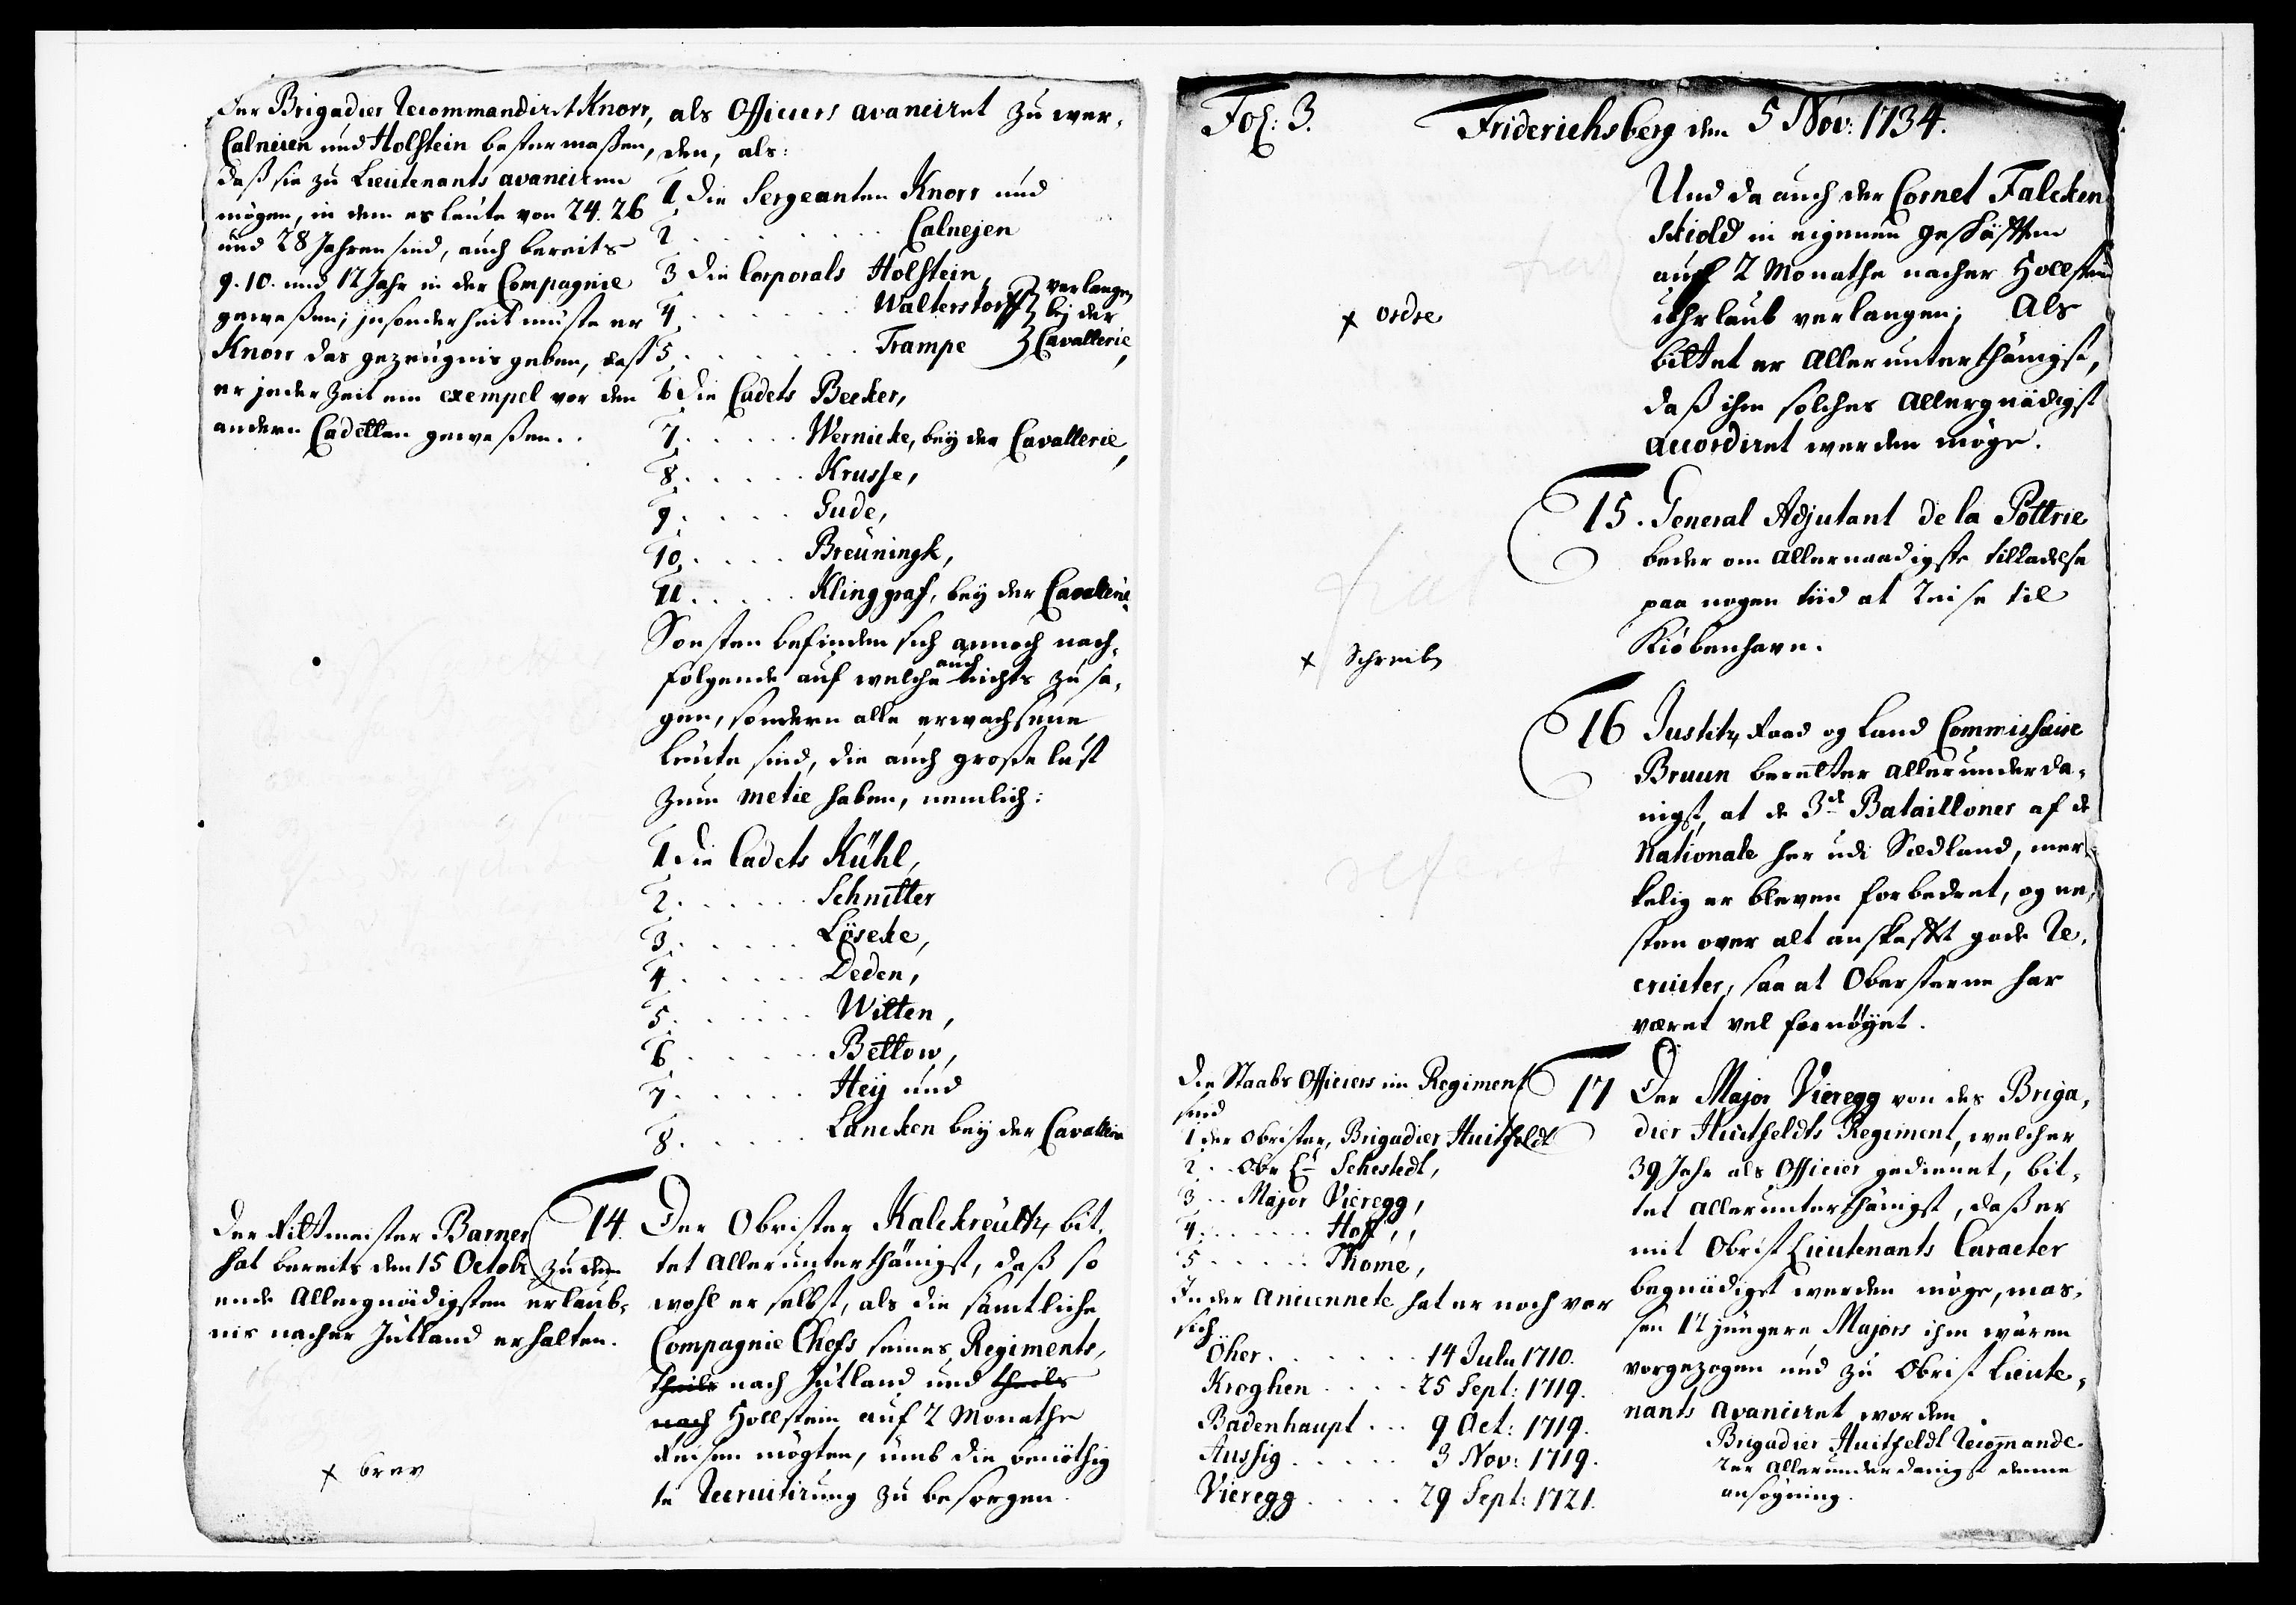 Der Brigadier Recommandiret Knorr,
Calneien und Holstein bestermaßen,
daß sie zu Lieutenants avanciren
mögen, in dem es leute von 24. 26
und 28 Jahren sind, auch bereits
9. 10. und 12 Jahr in der Compagnie
geweßen; insonderheit müste er
Knorr das gezeugnis geben, daß
er jeder Zeit ein exempel vor den
andern Cadetten geweßen.
als Officiers avanciret zu wer-
den, als:
1 die Sergeanten Knorr und
2 . . . . . . . . Calnejen
3 die Corporals Holstein,
4 . . . . . . . Walterstorff } verlangen bej der
5 . . . . . . . Trampe } Cavallerie,
6 die Cadets Becker,
7 . . . . . Wernicke, beÿ der Cavallerie,
8 . . . . . Krusse,
9 . . . . Gude,
10 . . . . Breüningk,
11 . . . . Klinggraf, beÿ der Cavallerie
Sonsten befinden sich annoch nach-
folgende auf welche auch nichts zu sa-
gen, sondern alle erwachsene
leute sind, die auch große lust
zum metie haben, nemlich:
1 die Cadets Kühl,
2 . . . . . . Schnitter
3 . . . . . Löseke,
4 . . . . . Deden,
5 . . . . . Witten,
6 . . . . . Bettow,
7 . . . . . Heÿ und
8 . . . . . Lancken beÿ der Cavallerie
Der Rittmeister Barner
hat bereits den 15 Octobr zu dem
ende Allergnädigsten erlaub-
nis nacher Jütland erhalten.
x brev
14. Der Obrister Kalckreutz, bit-
tet allerunterthänigst, daß so
wohl er selbst, als die sämtliche
Compagnie Chefs seines Regiments,
theils nach Jütland und theils
nach Hollstein auf 2 Monathe
Reisen mögten, umb die benöthig
te Recruitirung zu besorgen.
Fol: 3. Friderichsberg den 5 Nov: 1734.
Und da auch der Cornet Falcken
skiold in eigenen geschäfften
auf 2 Monathe nacher Hollstein
uhrlaub verlangen; Als
bittet er Allerunterthänigst,
daß ihm solches Allergnädigst
accordiret werden möge.
x ordre
15. General Adjutant de la Pottrie
beder om allernaadigste tilladelse
paa nogen tiid at Reise til
Kiöbenhavn.
x Schreiben
16 Justitz Raad og Land Commissaire
Bruun beretter allerunderda-
nigst, at de 3de Batailloner af de
Nationale her udi Siedland, mer-
kelig er bleven forbedret, og ne-
sten over alt anskaffet gode Re-
cruter, saa at Obersterne har
været vel fornöÿet.
Die Staabs Officiers im Regiment
sind
1 der Obrister, Brigadier Huitfeldt
2 . . Obr Lt Sehestedt,
3 . . Major Vieregg,
4 . . . . . . Hoff,
5 . . . . . . Thome,
In der Anciennete hat er noch vor
sich
Öher . . . . . . 14 July 1710.
Kroghen . . . . 25 Sept: 1719.
Badenhaupt . . . 9 Oct: 1719.
Aussig . . . . . 3 Nov: 1719.
Vieregg . . . . 29 Sept: 1721.
17 Der Major Vieregg von des Briga-
dier Huitfeldts Regiment, welcher
39 Jahr als Officier gedienet, bit-
tet allerunterthänigst, daß er
mit Obrist Lieutenants Caracter
begnädiget werden möge, mas-
sen 12 jüngere Majors ihm wären
vorgezogen und zu Obrist Lieute-
nants avanciret worden.
Brigadier Huitfeldt Recommande-
rer allerunderdanigst denne
ansögning.